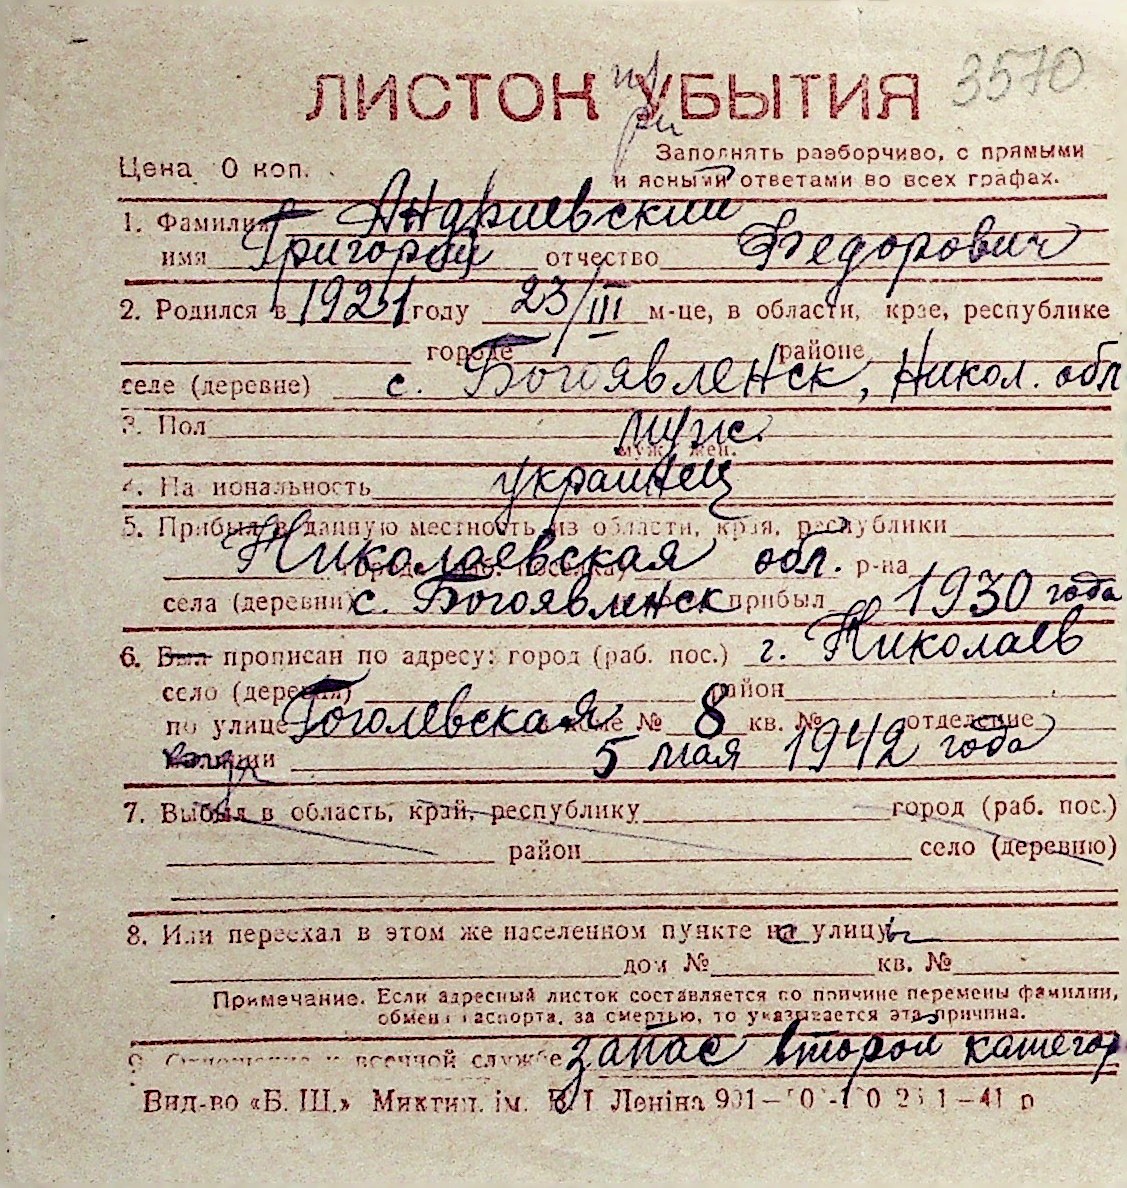 3570
ЛИСТОК УБЫТИЯ
Цена 0 коп.
Заполнять разборчиво, с прямыми
и ясными ответами во всех графах.
1. Фамилия Андриевский
имя Григорий отчество Федорович
2. Родился в 1921 году 23/III м-це, в области, крае, республике
городе районе
селе (деревне) с. Богоявленск, Никол. обл
3. Пол муж.
муж. жен.
4. Национальность украинец
5. Прибыл в данную местность из области, края, республики
Николаевская обл. р-на
села (деревни) с. Богоявленск прибыл 1930 года
6. Был прописан по адресу: город (раб. пос.) г. Николаев
село (деревня) район
по улице Гоголевская доме № 8 кв. № отделение
5 мая 1942 года
7. Выбыл в область, край, республику город (раб. пос.)
район село (деревню)
8. Или переехал в этом же населенном пункте на улицу
дом № кв. №
Примечание. Если адресный листок составляется по причине перемены фамилии,
обмена паспорта, за смертью, то указывается эта причина.
9. Отношение к военной службе запас второй категор
Вид-во «Б. Ш.» Миктип. ім. В. І. Леніна